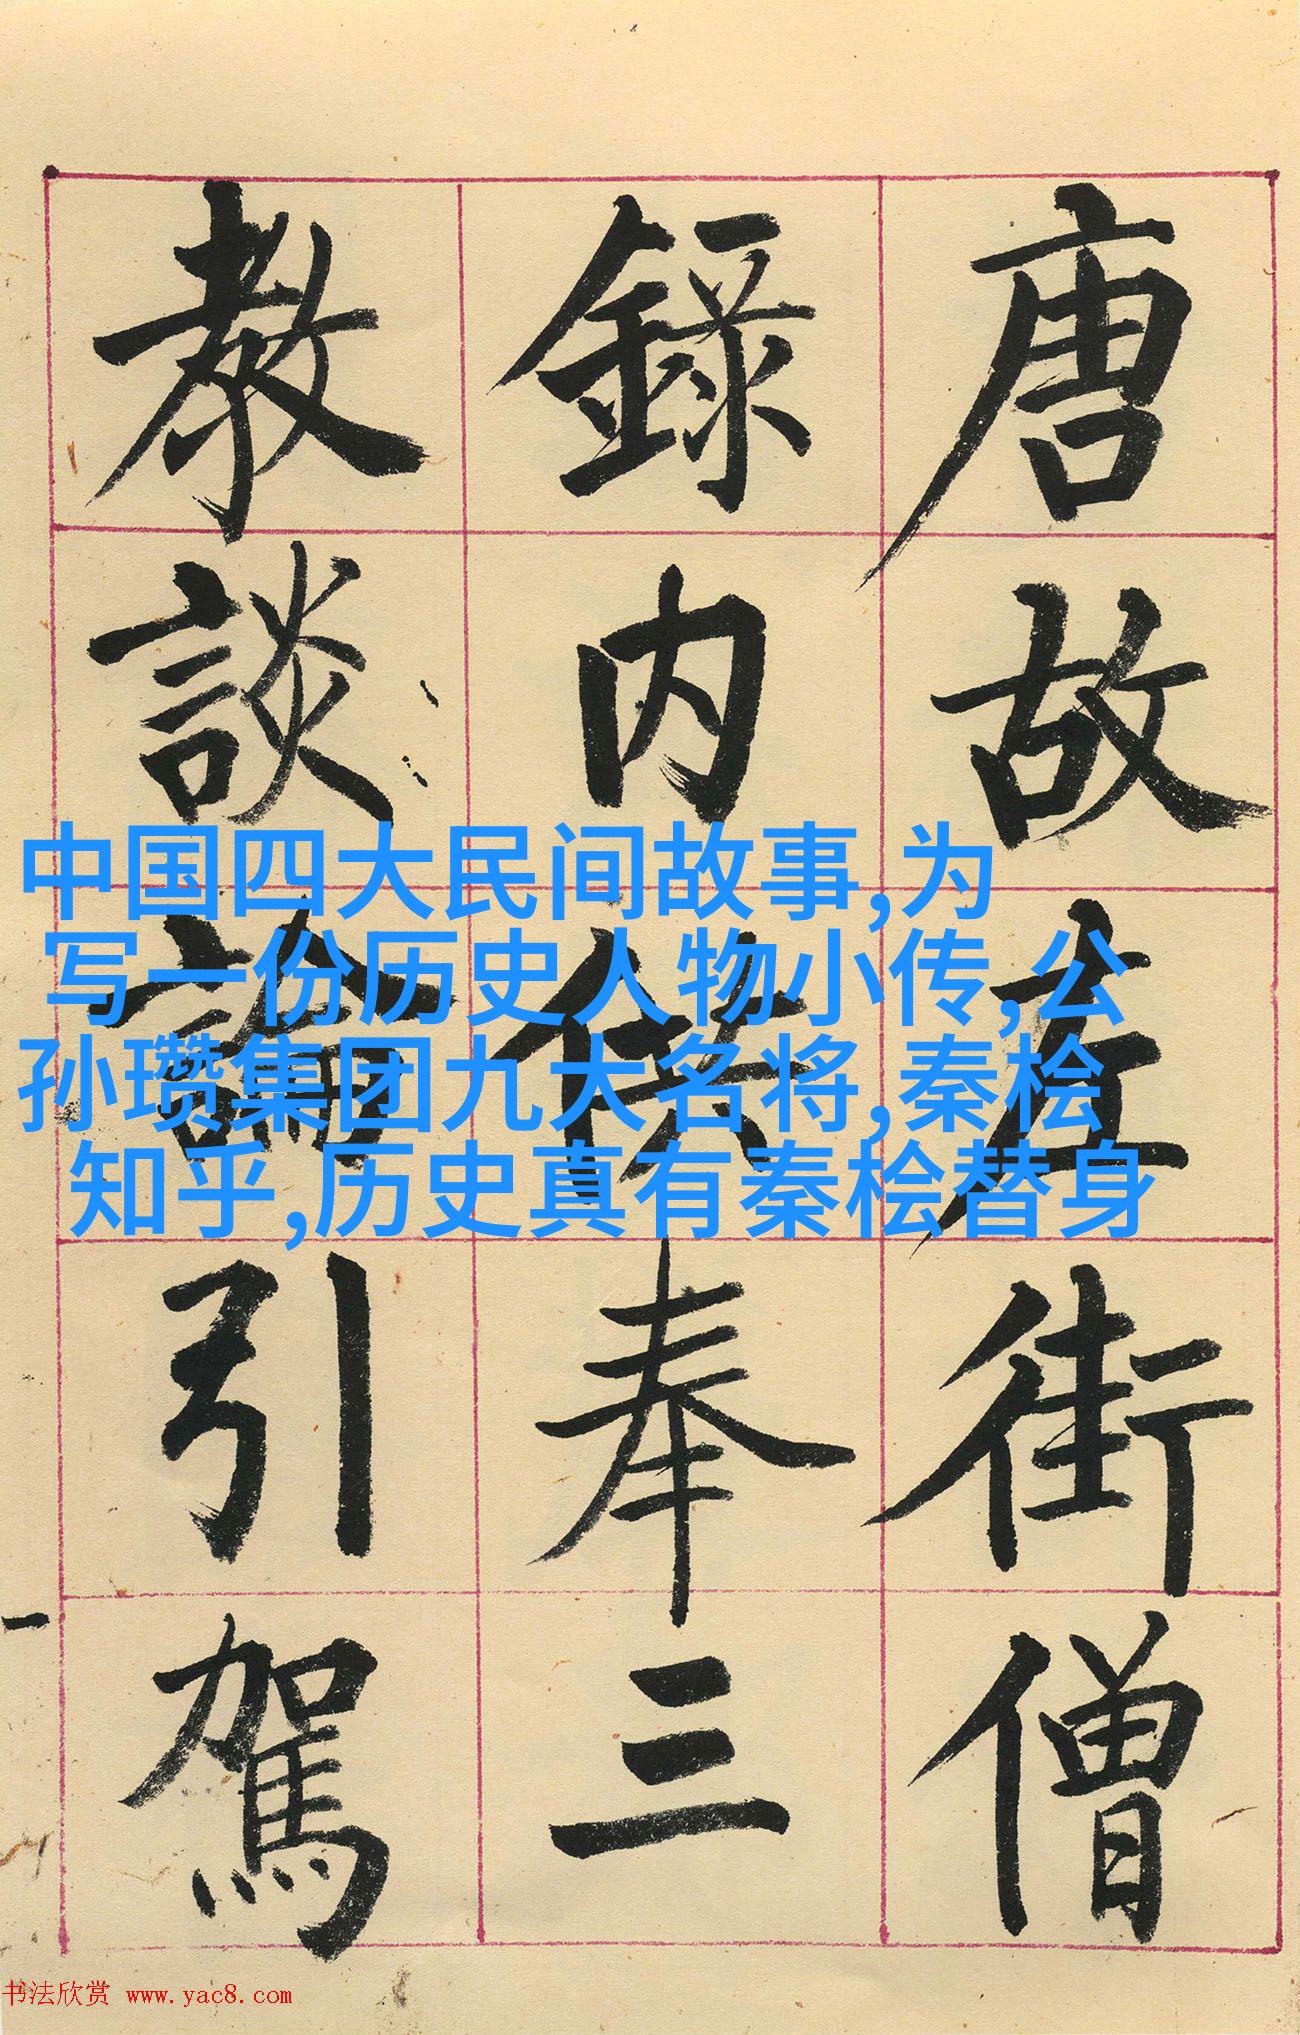 唐故左街僧
錄内供奉三
教談論引駕
中国四大民间故事,为
写一份历史人物小传,公
孙瓒集团九大名将,秦桧
知乎,历史真有秦桧替身
书法欣赏 www.yac8.com